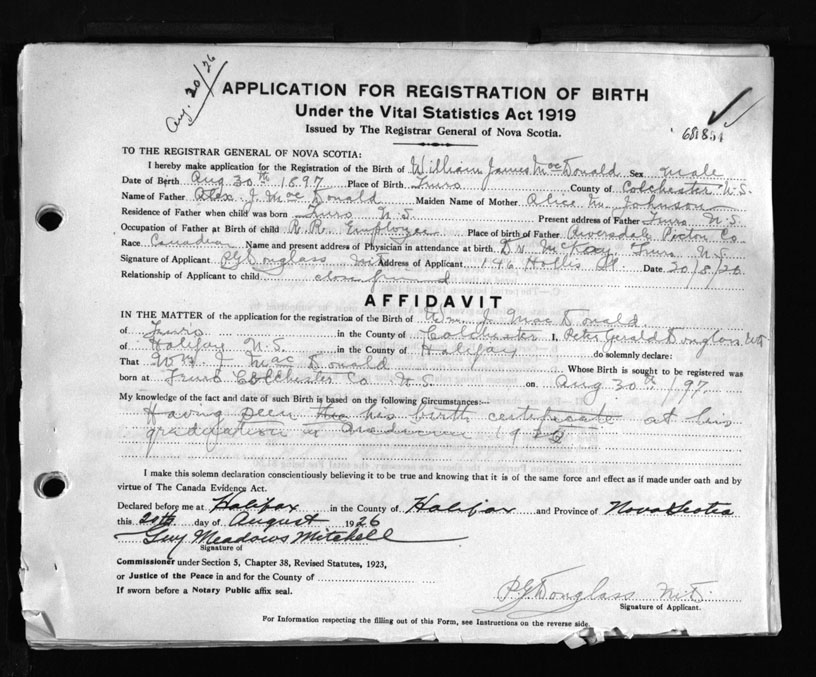 Aug. 20/26
APPLICATION FOR REGISTRATION OF BIRTH
Under the Vital Statistics Act 1919
Issued by The Registrar General of Nova Scotia.
TO THE REGISTRAR GENERAL OF NOVA SCOTIA:
I hereby make application for the Registration of the Birth of William James MacDonald Sex Male
Date of Birth Aug 30th 1897 Place of Birth Truro County of Colchester N.S.
Name of Father Alex J. MacDonald Maiden Name of Mother Alice M. Johnson
Residence of Father when child was born Truro N.S. Present address of Father Truro N.S.
Occupation of Father at Birth of child R.R. Employee Place of birth of Father Riversdale Pictou Co.
Race Canadian Name and present address of Physician in attendance at birth. Dr. McKay, Truro N.S.
Signature of Applicant P.G. Douglass Address of Applicant. 146 Hollis St. Date 20/8/26
Relationship of Applicant to child close friend
AFFIDAVIT
IN THE MATTER of the application for the registration of the Birth of Wm. J. MacDonald
of Truro in the County of Colchester I, Peter Gerald Douglass
of Halifax N.S. in the County of Halifax do solemnly declare:
That Wm. J MacDonald Whose Birth is sought to be registered was
born at Truro Colchester Co. N.S. on Aug 30th /97
My knowledge of the fact and date of such Birth is based on the following Circumstances:—
Having seen his birth certificate at his
graduation in medicine
I make this solemn declaration conscientiously believing it to be true and knowing that it is of the same force and effect as if made under oath and by
virtue of The Canada Evidence Act.
Declared before me at Halifax in the County of Halifax and Province of Nova Scotia
this 20th day of August 1926
Guy Meadows Mitchell
Signature of
Commissioner under Section 5, Chapter 38, Revised Statutes, 1923,
or Justice of the Peace in and for the County of
If sworn before a Notary Public affix seal.
P.G. Douglass
Signature of Applicant.
For Information respecting the filling out of this Form, see Instructions on the reverse side.